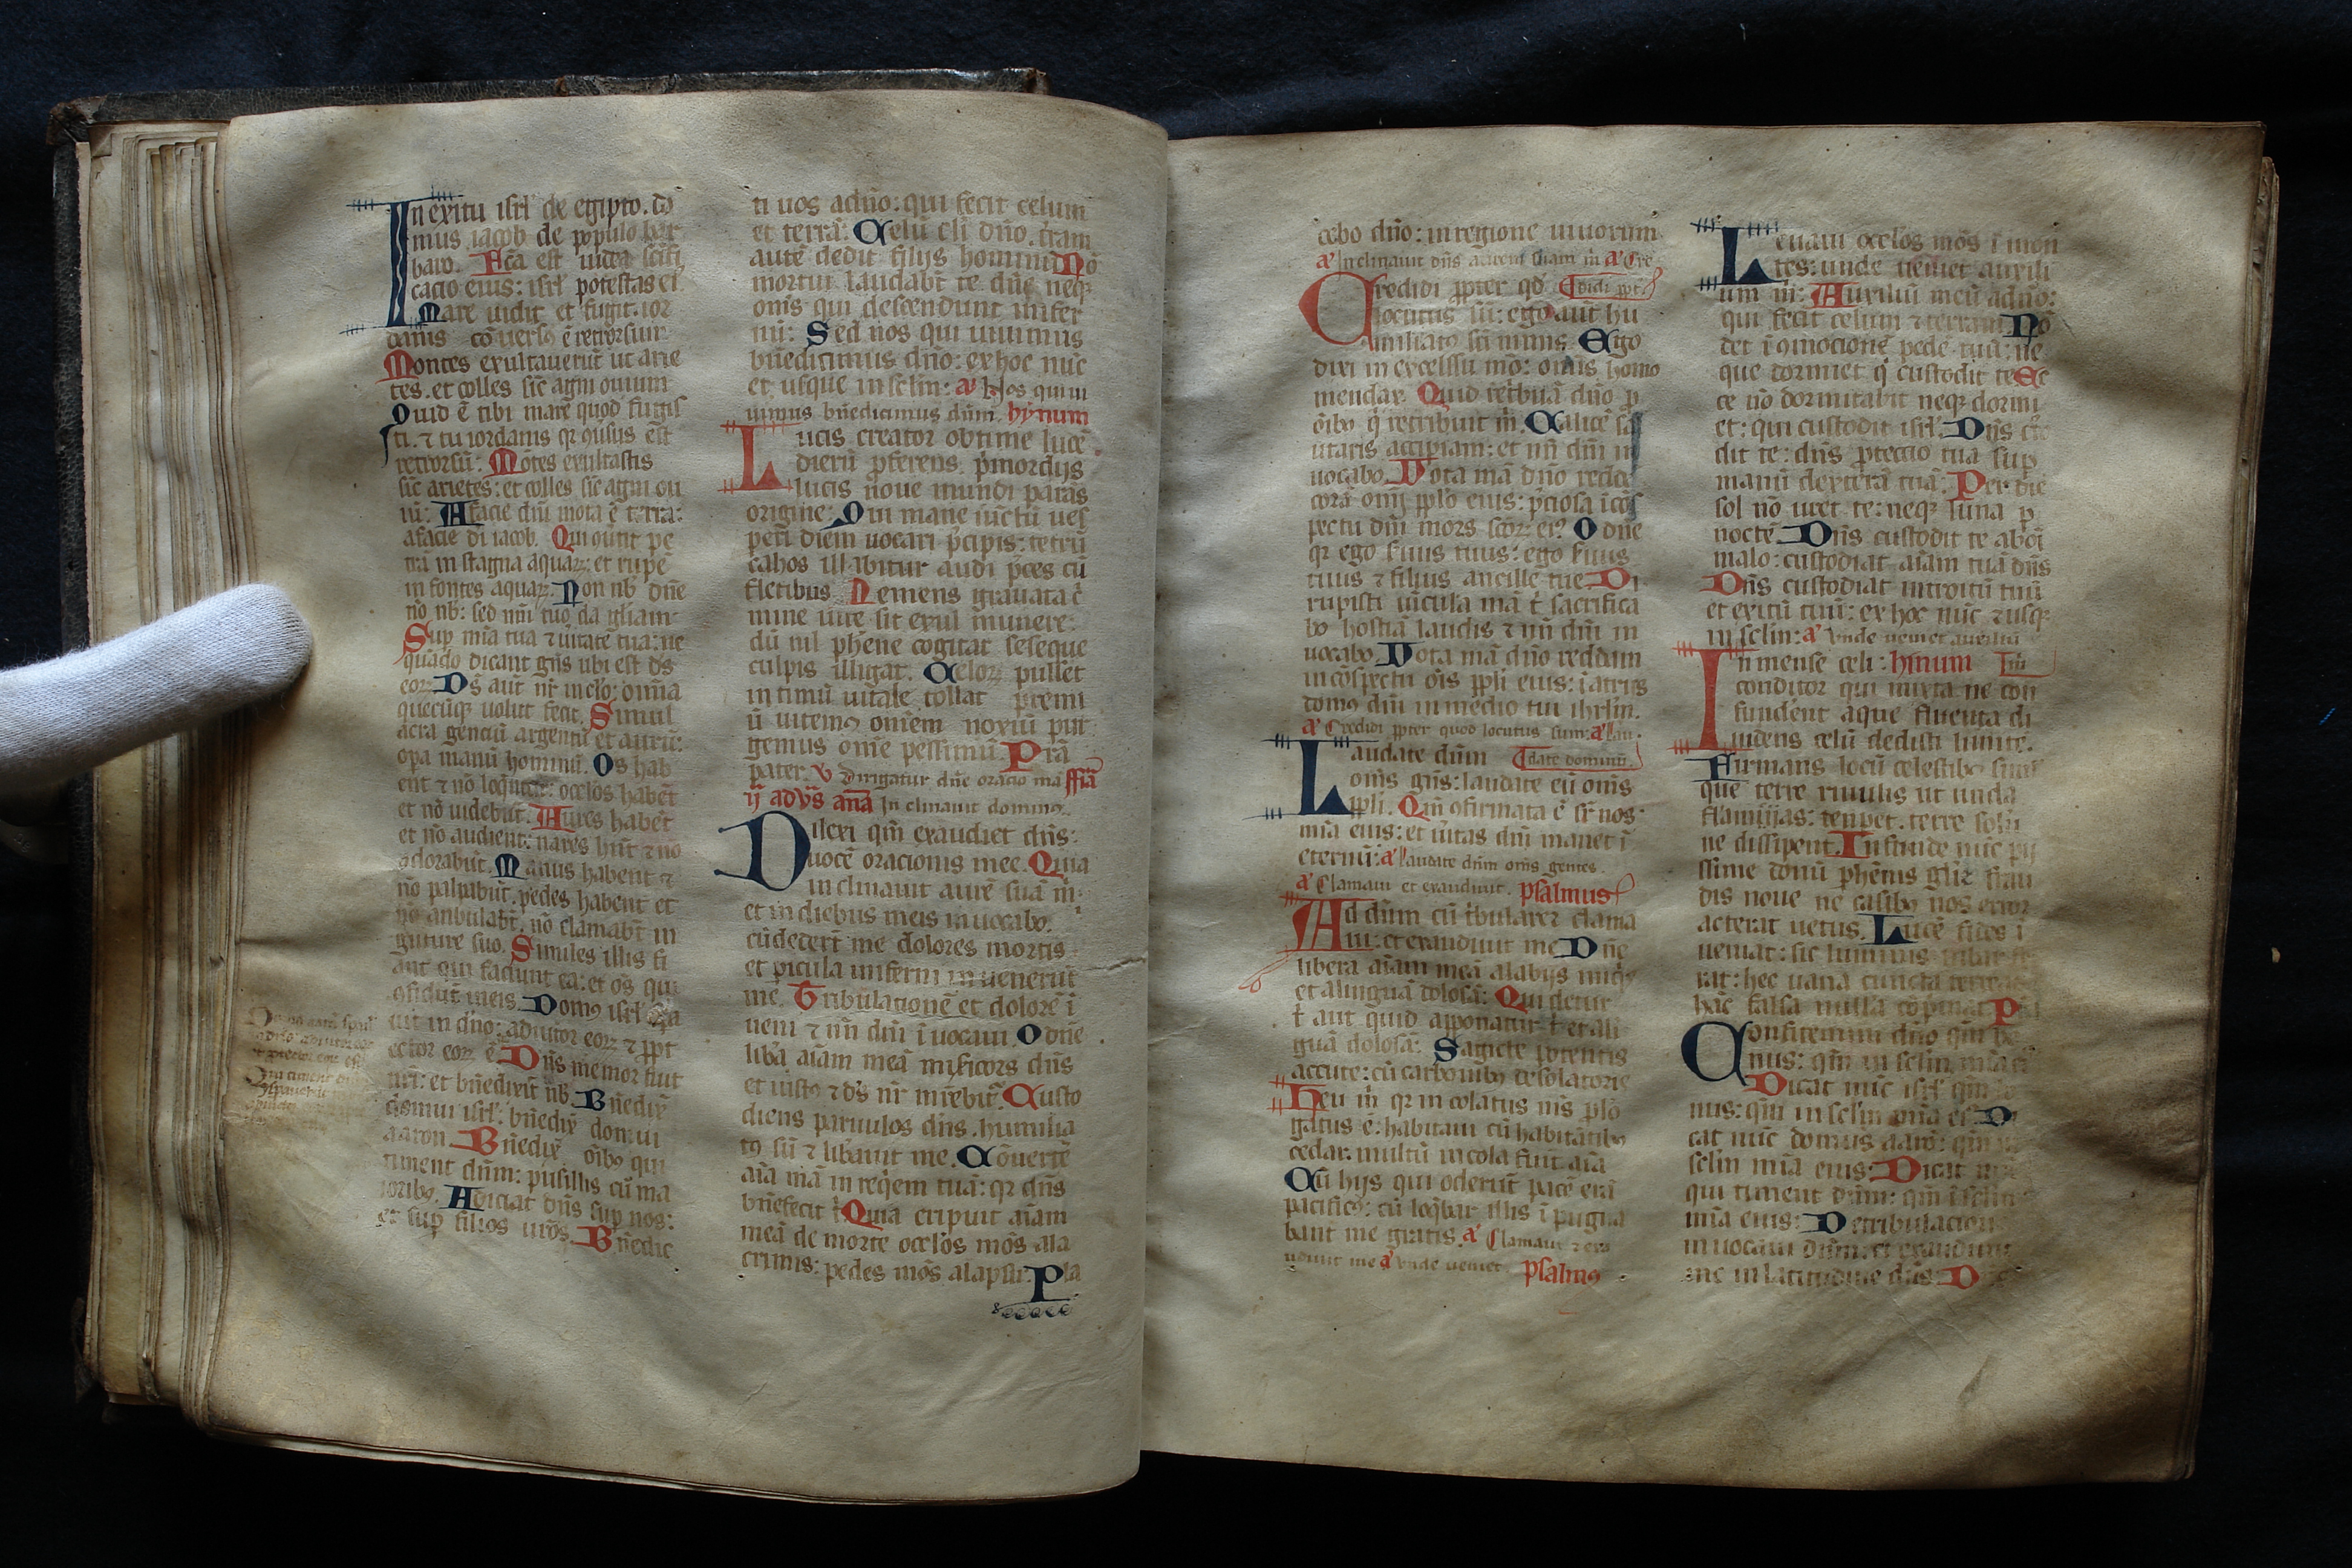 In exitu isrl' de egipto. do
mus iacob de populo bar
baro. Fca est iudea scifi
cacio eius: isrl' potestas ei'
Mare uidit et fugit. ior
danis cōuersꝰ ē retrorsum
Montes exultauerūt ut arie
tes. et colles sic agni ouium
Quid ē tibi mare quod fugis
ti. ⁊ tu iordanis qr ꝗusus est
retrorsū: Mōtes exultastis
sic arietes: et colles sic agni oui
ū: A facie dn̄i mota ē terra:
afacie di iacob. Qui ꝗutit pe
trā in stagna aquaꝝ: et rupē
in fontes aquaꝝ. Non nb' dn̄e
nō nb': sed nn̄i tuo da gl'iam
Sup mīa tua ⁊ ūitate tua: ne
quādo dicant gn̄s ubi est ds
eoꝝ: Ds aut nr̄ in celo: omīa
quecūqꝫ uoluit fecit. Simul
acra genciū argentū et aurū:
opa manū hominū. Os hab
ent ⁊ nō loquēt: oculos habēt
et nō uidebūt. Aures habēt
et nō audient: nares hn̄t ⁊ nō
odorabūt. Manus habent ⁊
nō palpabūt. pedes habent et
nō anbulabt. nō clamabt in
guture suo. Similes illis fi
ant qui faciunt ea: et oēs qui
ꝯfidūt in eis. Domꝰ isrl' spa
uit in dn̄o: adiutor eoꝝ ⁊ ꝓt
ector eoꝝ ē. Dn̄s memor fuit
nr̄i: et bn̄edixit nb'. Bn̄edix̄
domui isrl': bn̄edix̄ domui
aaron. Bn̄edix̄ oībꝰ qui
timent dn̄m: pusillis cū ma
ioribꝰ. Adiciat dn̄s sup nos:
et sup filios ur̄os. Bn̄edic
ti uos a dn̄o: qui fecit celum
et terrā. Celū celi dn̄o. t'ram
autē dedit filijs hominū Nō
mortui laudabt te dn̄e neqꝫ
om̄s qui descendunt in infer
nū: Sed nos qui uiuimus
bn̄edicimus dn̄o: ex hoc nūc
et usque in sclm̄: a' Nos qui ui
uimus bn̄edicimus dn̄m. hỹnum
Lucis creator obtime lucē
dierū ꝓferens. p'mordijs
lucis noue mundi parās
origine: Qui mane iūctū ues
peri diem uocari p'cipis: tetrū
cahos illabitur audi p'ces cū
fletibus Ne mens grauata c'
mine uite sit exul munere:
dū nil phēne cogitat seseque
culpis illigat. Celoꝝ pulset
intimū uitale tollat premi
ū uitemꝰ omēm noxiū pur
gemus om̄e pessimū Prā
pater. v' Dirigatur dn̄e oracio mā ffiā
ij adv̄s anā Inclinauit dominꝰ.
Dilexi qm̄ exaudiet dn̄s:
uocē oracionis mee. Quia
inclinauit aurē suā m̄:
et in diebus meis inuocabo.
Cūdedert me dolores mortis
et picula inferni inuenerūt
me. Tribulationē et dolorē i
ueni ⁊ nn̄ dn̄i iuocaui O dn̄e
lib'a aīam meā misicors dn̄s
et iustꝰ ⁊ ds nr̄ mr̄ebit'. Custo
diens paruulos dn̄s. humilia
tꝰ sū ⁊ libauit me. Conuerte
aīa mā in reqem tuā: qr dn̄s
bn̄efecit t' Quia eripuit aīam
meā de morte oculos mōs ala
crimis: pedes mōs alapsu. Pla
cebo dn̄o: in regione uiuorum
a' Inclinauit dn̄s aurem suam m̄ a' Cre
Credidi ꝓpter qd' didi ꝓpt'
locutus sū: ego aut hu
miliatꝰ sū nimis. Ego
dixi in excelsu mō: om̄is homo
mendax. Quid ret'buā dn̄o p
oībꝰ q̄ retribuit m̄. Calicē sa
utaris accipiam: et nn̄ dn̄i in
uocabo. Vota mā dn̄o reddā
corā omī pplo eius: p'ciosa icōs
pectu dn̄i mors scōꝝ ei' O dn̄e
qr ego suus tuus: ego suus
tuus ⁊ filius ancille tue Di
rupisti uīcula mā t' sacrifica
bo hostiā laudis ⁊ nn̄ dn̄i in
uocabo Vota mā dn̄o reddam
in cōspectu ōis ppli eius: i atrijs
domꝰ dn̄i in medio tui ihrlm.
a' Credidi ꝓpter quod locutus sum: a' Lau
Laudate dn̄m date dominū.
om̄s gn̄s: laudate eū om̄s
ppli. Qm̄ ꝯfirmata ē sr̄ nos
mīa eius: et ūitas dn̄i manet i
eternū: a' Laudate dn̄m om̄s gentes.
a' Clamaui et exaudiuit. psalmus
Ad dn̄m cū t'bularer clama
ui: et exaudiuit me Dn̄e
libera aīam meā alabijs iniqs
et alinguā dolosā: Qui detur
t' aut quid apponatur t' et ali
guā dolosā: Sagitte potentis
accute: cū carbonibꝰ desolatorie
Heu m̄ qr incolatus ms plō
gatus ē: habitaui cū habitātibꝰ
cedar: multū incola fuit aīa
Cū hijs qui oderūt pacē erā
pacificꝰ: cū loqbar illis ipugna
bant me gratis. a' Clamaui ⁊ exa
udiuit me a' Vnde ueniet. psalmꝰ
Leuaui oculos mōs i mon
tes: unde ueniet auxili
um m̄: Auxiliū meū a dn̄o:
qui fecit celum ⁊ terram Nō
det i ꝯmocionē pedē tuū: ne
que dormiet q̄ custodit te Ec
ce nō dormitabit neqꝫ dormi
et: qui custodit isrl'. Dn̄s cto
dit te: dn̄s ꝓteccio tua sup
manū dexterā tuā: Per diē
sol nō uret te: neqꝫ luna p
noctē. Dn̄s custodit te ab oī
malo: custodiat aīam tuā dn̄s
Dn̄s custodiat introitū tuū
et exitū tuū: ex hoc nūc ⁊ usqꝫ
in sclm̄: a' Vnde ueniet auxiliū
Inmense celi: himum
conditor qui mixta ne con
fundent aque fluenta di
uidens celū dedisti limitē.
Firmans locū celestibꝰ simul
que terre riuulis ut unda
flammas: tenpet. terre solū
ne dissipent. Infunde nūc pij
ssime donū phēnis glīe frau
dis noue ne casibꝰ nos error
acterat uetus. Lucē fides i
ueniat: sic luminis iubar fe
rat: hec uana cuncta terreat
hāc falsa nulla cōpmāt P
Confitemini dn̄o qm̄ bo
nus: qm̄ in sclm̄ mīa ei'
Dicat nūc isrl' qm̄ bo
nus: qm̄ in sclm̄ mīa ei' Di
cat nūc domus aarō: qm̄ in
sclm̄ mīa eius: Dicāt nūc
qui timent dn̄m: qm̄ i sclm̄
mīa eius: De tribulacione
inuocaui dn̄m: et exaudiuit
me in latitudine dn̄s: D